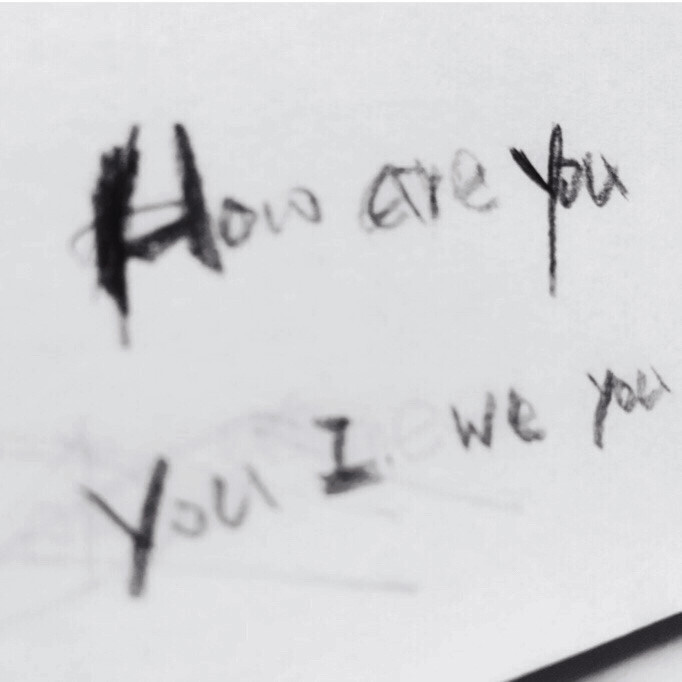 How are you
You I we you